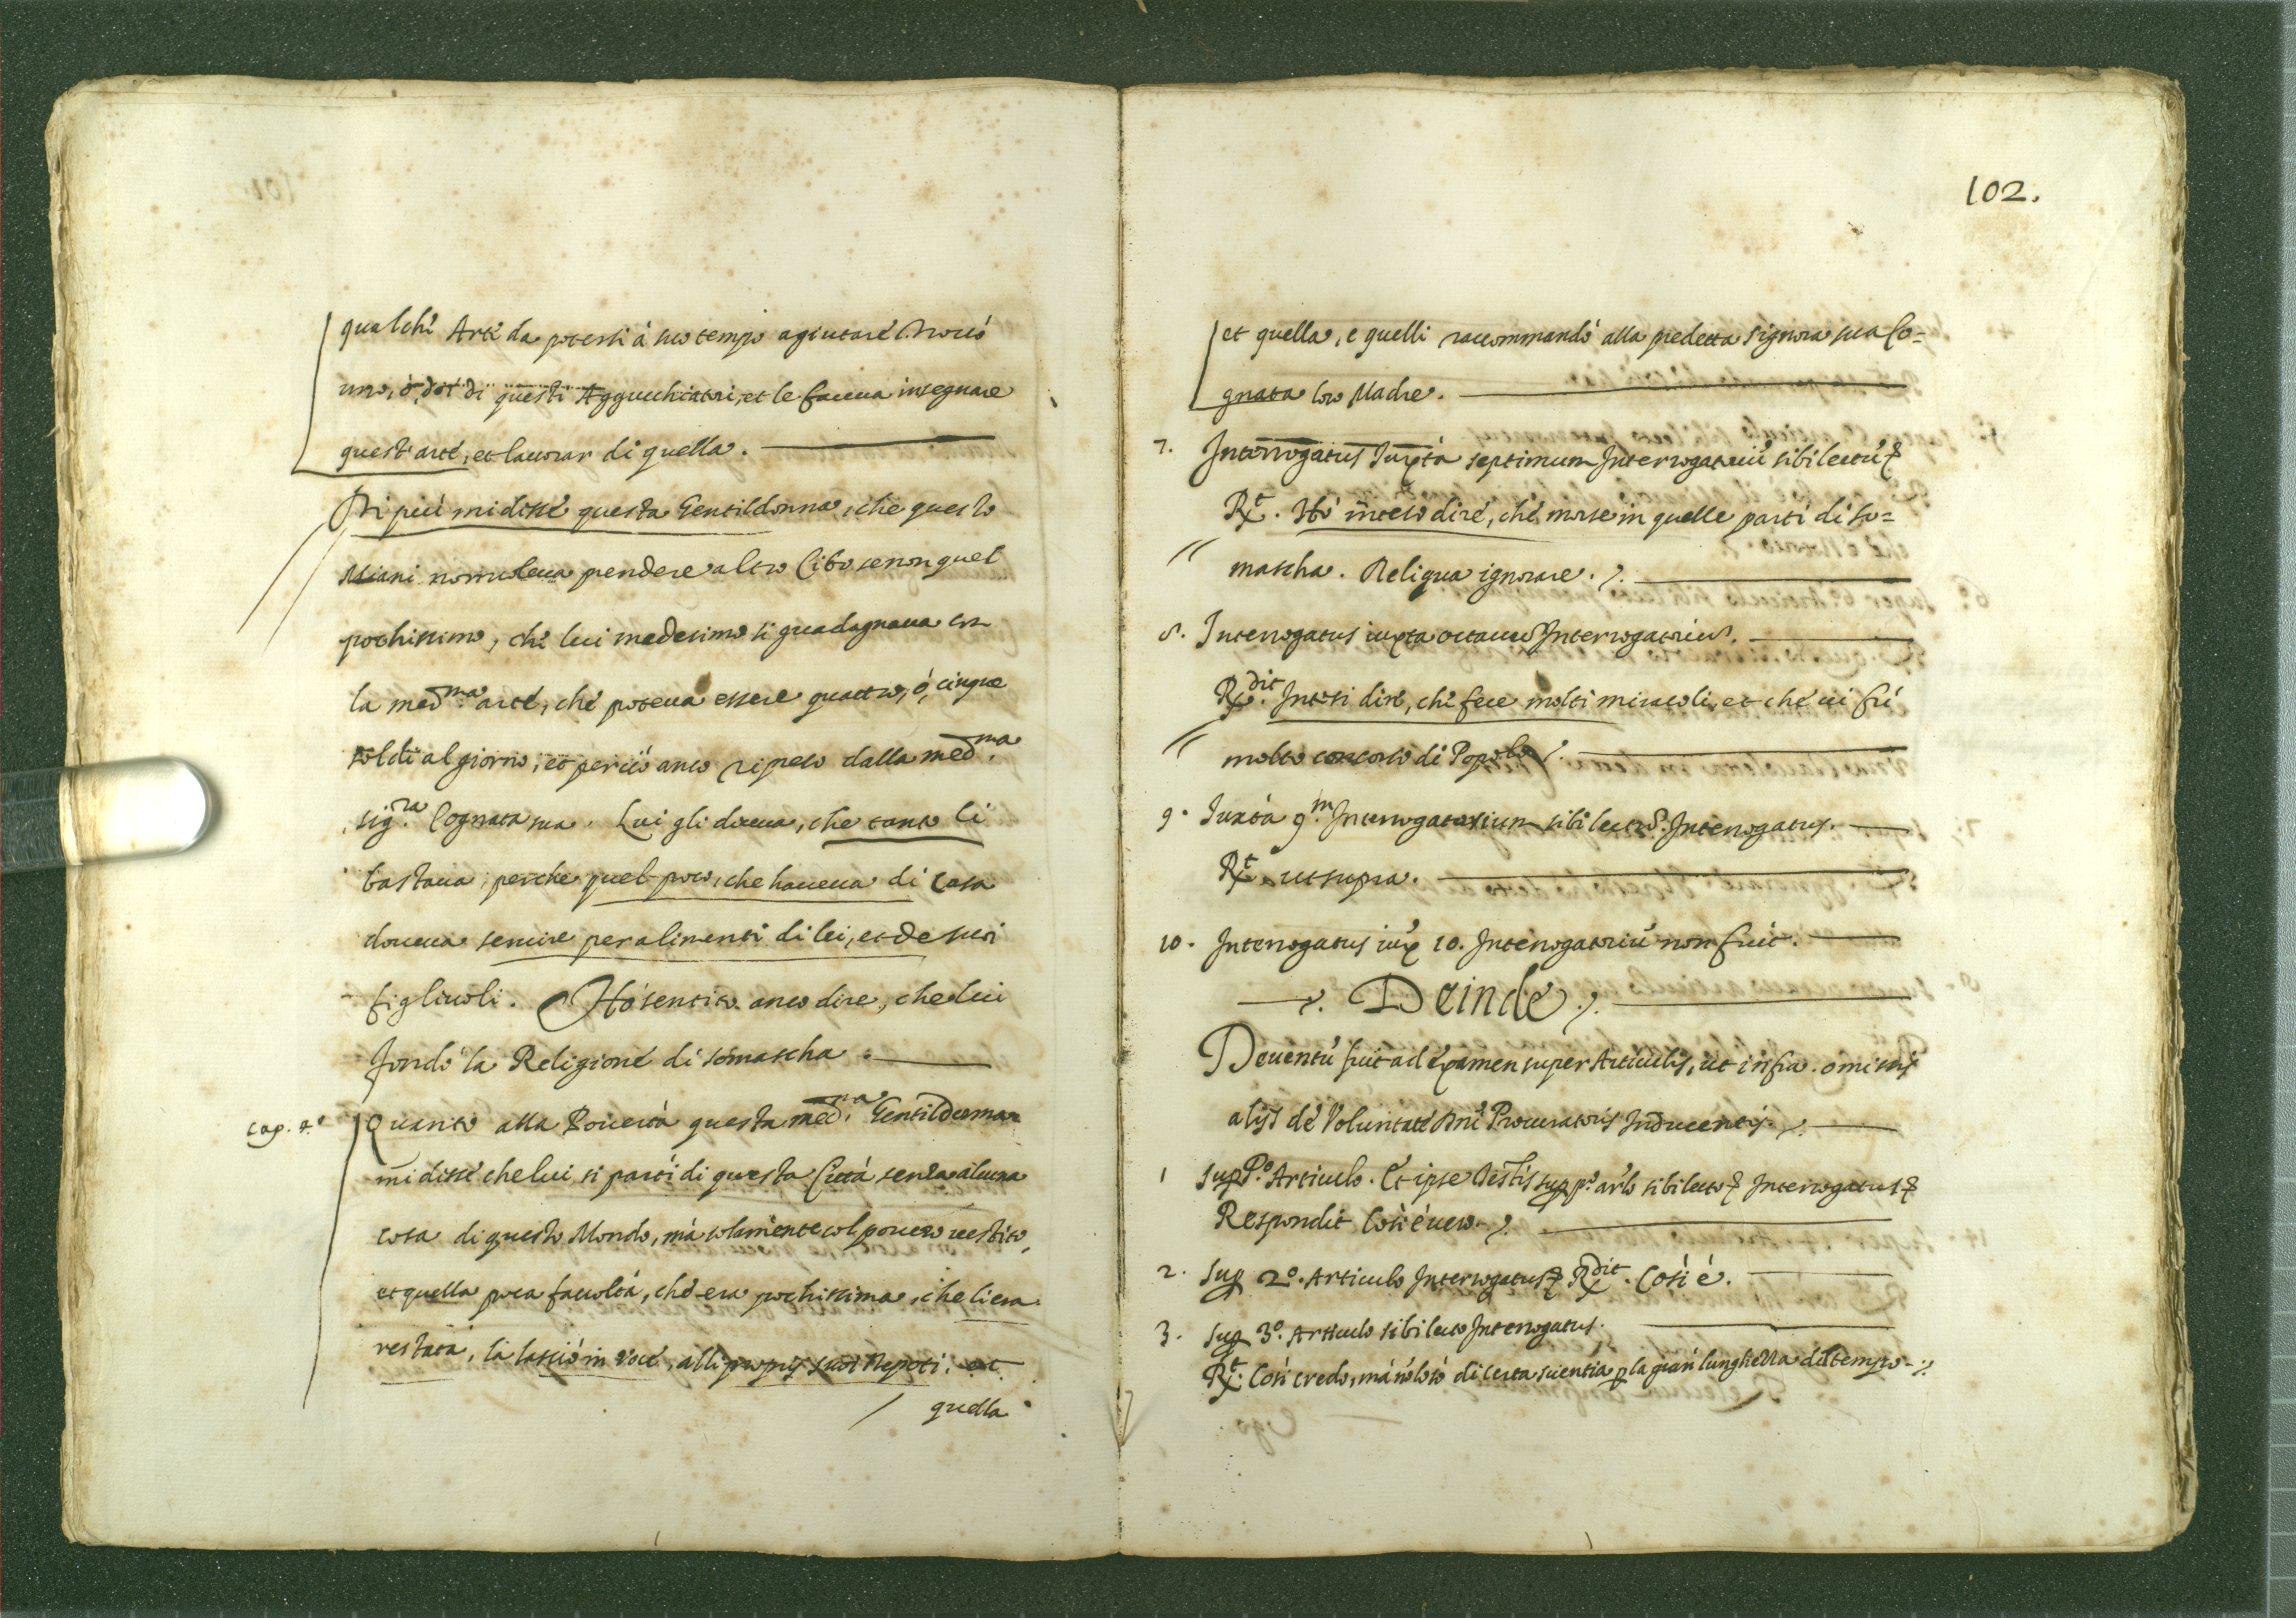 qualche Arte da potersi à suo tempo agiutare. Trouò
uno, ò doi di questi Aggucchiatori, et le faceua insegnare
quest'arte, et lauorar di quella.
Di più mi disse questa Gentildonna, che questo
Miani non voleua prendere altro Cibo se non quel
pochissimo, che lui medesimo si guadagnaua con
la med.ma arte, che poteua essere quattro, ò, cinque
soldi al giorno, et perciò anco ripreso dalla med.ma
sig.ra Cognata sua. Lui gli diceua, che tanto li
bastaua, perche quel poco, che haueua di Casa
doueua seruire per alimenti di lei, et de suoi
figliuoli. Hò sentito anco dire, che lui
fondò la Religione di somascha.
Cap. 4.o
Quanto alla Pouertà questa med.ma Gentildonna
mi disse che lui si partì di questa Città senza alcuna
cosa di questo Mondo, mà solamente col pouero uestito,
et quella poca facoltà, che era pochissima, che li era
restata, la lasciò in voce, alli proprij suoi Nepoti, et
quella
102.
et quella, e quelli raccommandò alla predetta signora sua Co=
gnata loro Madre.
7. Interrogatus Iuxta septimum Interrogatoriũ sibi lectũ
R.t Hò inteso dire, che morse in quelle parti di so=
mascha. Reliqua ignorare.
8. Interrogatus iuxta octauum Interrogatorium.
R.dit Intesi dire, che fece molti miracoli, et che ui fù
molto concorso di Popolo.
9. Iuxta 9.m Interrogatorium sibi lectum Interrogatus.
R.t ut supra.
10. Interrogatus iux 10. Interrogatoriũ non fuit.
Deinde
Deuentũ fuit ad examen super Articulis, ut infra. omissis
alijs de Voluntate Dni Procuratoris Inducentis.
1 Sup P.o Articulo. Et ipse Testis sup p.o arlo sibi lecto Interrogatus
Respondit Cosi è uero.
2. Sup 2.o Articulo Interrogatus R.dit. Cosi è.
3. Sup 3.o Articulo sibi lecto Interrogatus.
R.t Cosi credo, mà nõ lo sò di certa scientia p la gran lunghezza del tempo.